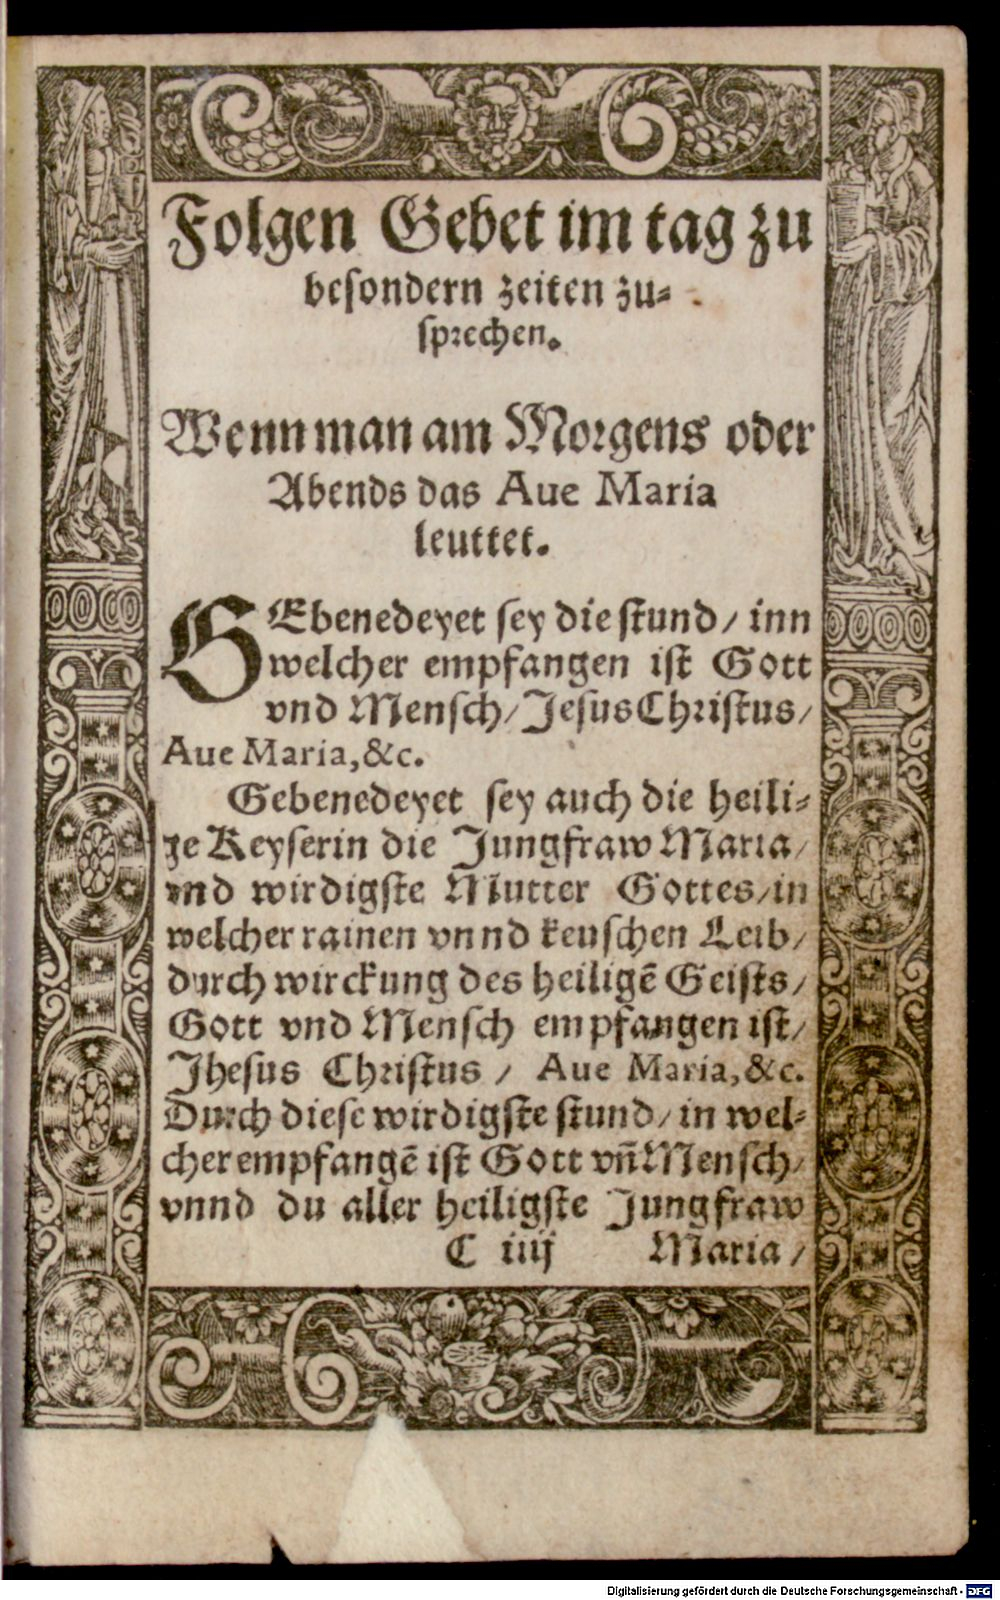 Folgen Gebet im tag zu
besondern zeiten zu⸗
sprechen.
Wenn man am Morgens oder
Abends das Aue Maria
leuttet.
GEbenedeyet sey die stund/ inn
welcher empfangen ist Gott
vnd Mensch/ Jesus Christus/
Aue Maria, &c.
Gebenedeyet sey auch die heili⸗
ge Keyserin die Jungfraw Maria/
vnd wirdigste Mutter Gottes/ in
welcher rainen vnnd keuschen Leib/
durch wirckung des heiligē Geists/
Gott vnd Mensch empfangen ist/
Jhesus Christus / Aue Maria, &c.
Durch diese wirdigste stund/ in wel⸗
cher empfangē ist Gott vn̄ Mensch/
vnnd du aller heiligste Jungfraw
C iiij Maria /
Digitalisierung gefördert durch die Deutsche Forschungsgemeinschaft - DFG